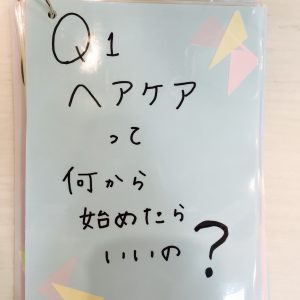 Q1
ヘアケア
って
何から
始めたら
いいの?